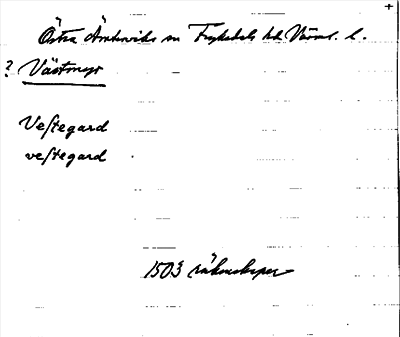 +
Östra Ämterviks sn Fryksdals hd Värml. l.
? Västmyr
Veſtegard
veſtegard
1503 räkenskaper